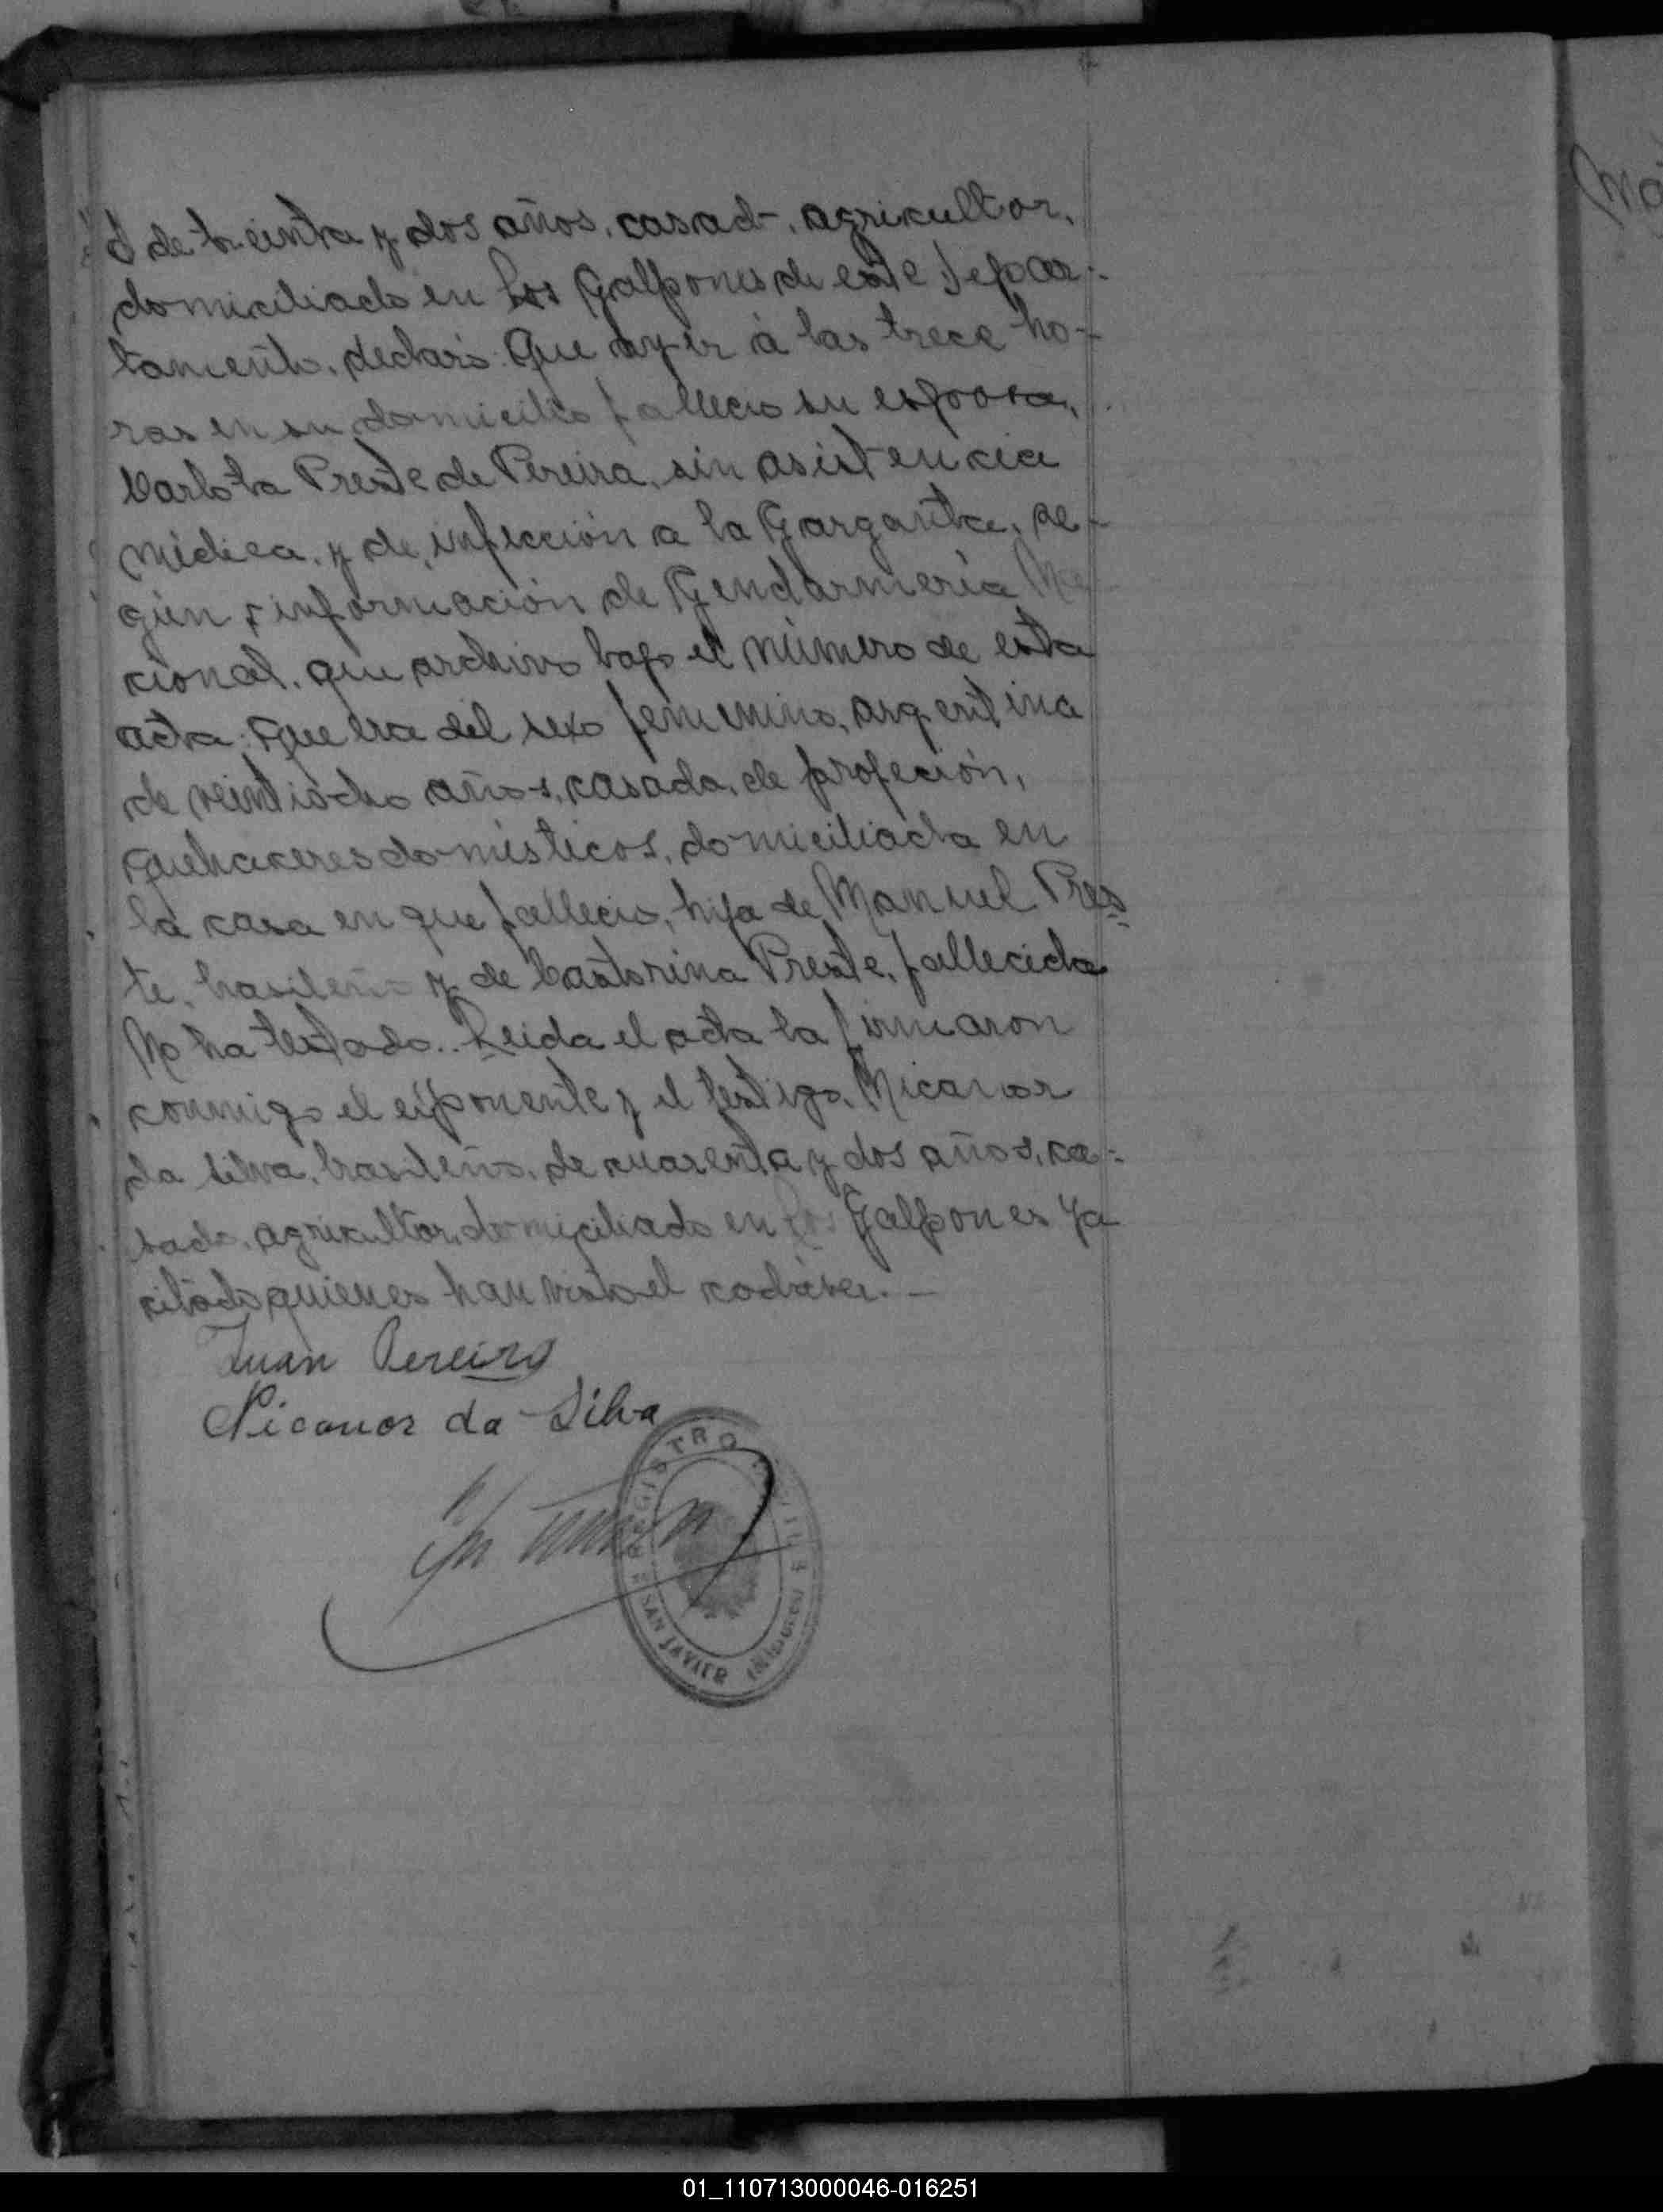 ó de treinta y dos años, casado, agricultor,
domiciliado en Los Galpones de este Depar-
tamento, declaró: Que ayer á las trece ho-
ras en su domicilio falleció su esposa,
Carlota Preste de Pereira, sin asistencia
médica, y de infección a la Garganta, se-
gún información de Gendarmería Na
cional, que archivo bajo el número de esta
acta: que era del sexo femenino, argentina
de veintiocho años, casada, de profeción,
quehaceres domésticos, domiciliada en
la casa en que falleció, hija de Manuel Pres-
te, brasileño y de Castorina Preste, fallecida
No ha testado.. Leida el acta la firmaron
conmigo el exponente y el testigo, Nicanor
da Silva, brasileño, de cuarenta y dos años, ca-
sado, agricultor, domiciliado en Los Galpones ya
citado quienes han visto el cadáver. —
Juan Pereira
Nicanor da Silva
REGISTRO CIVIL
SAN JAVIER (Misiones)
01_110713000046-016251